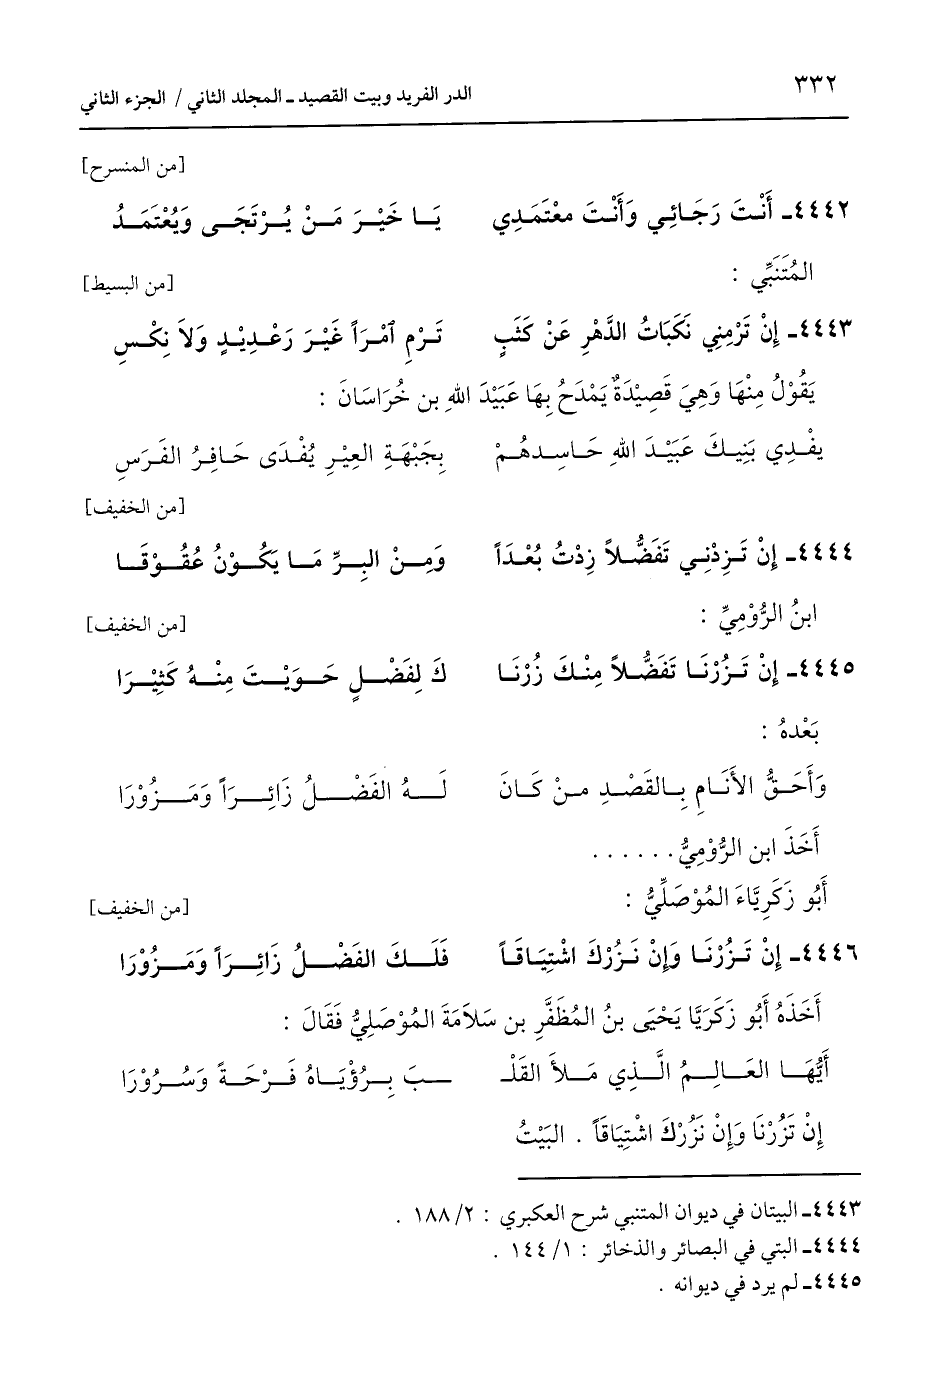 ٣٣٢
الدر الفريد وبيت القصيد ـ المجلد الثاني / الجزء الثاني
[من المنسرح]
٤٤٤٢ـ أَنْتَ رَجَائِي وَأَنْتَ معْتَمَدِي يَا خَيْرَ مَنْ يُرْتَجَى وَيُعْتَمَدُ
المُتَنَبِّي :
[من البسيط]
٤٤٤٣ـ إِنْ تَرْمِنِي نَكَبَاتُ الدَّهْرِ عَنْ كَثَبٍ تَرْمِ ٱمْرَاً غَيْرَ رَعْدِيْدٍ وَلاَ نِكْسِ
يَقُوْلُ مِنْهَا وَهِيَ قَصِيْدَةٌ يَمْدَحُ بِهَا عَبَيْدَ اللهِ بن خُرَاسَانَ :
يفْدِي بَنِيكَ عَبَيْدَ اللهِ حَاسِدهُمْ بِجَبْهَةِ العِيْرِ يُفْدَى حَافِرُ الفَرَسِ
[من الخفيف]
٤٤٤٤ـ إِنْ تَزِدْنِي تَفَضُّلاً زِدْتُ بُعْدَاً وَمِنْ البِرِّ مَا يَكُوْنُ عُقُوْقَا
ابنُ الرُّوْمِيِّ :
[من الخفيف]
٤٤٤٥ـ إِنْ تَزُرْنَا تَفَضُّلاً مِنْكَ زُرْنَا كَ لِفَضْلٍ حَوَيْتَ مِنْهُ كَثِيْرَا
بَعْدهُ :
وَأَحَقُّ الأَنَامِ بِالقَصْدِ منْ كَانَ لَهُ الفَضْلُ زَائِرَاً وَمَزُوْرَا
أَخَذَ ابن الرُّوْمِيُّ . . . . . .
أَبُو زَكَرِيَّاءَ المُوْصَلِّيُّ :
[من الخفيف]
٤٤٤٦ـ إِنْ تَزُرْنَا وَإِنْ نَزُرْكَ اشْتِيَاقَاً فَلَكَ الفَضْلُ زَائِرَاً وَمَزُوْرَا
أَخَذَهُ أَبُو زَكَرَيَّا يَحْيَى بنُ المُظَفَّرِ بن سَلاَمَةَ المُوْصَلِيُّ فَقَالَ :
أَيُّهَا العَالِمُ الَّذِي مَلأَ القَلْـ ـبَ بِرُؤْيَاهُ فَرْحَةً وَسُرُوْرَا
إِنْ تَزُرْنَا وَإِنْ نَزُرْكَ اشْتِيَاقَاً . البَيْتُ
٤٤٤٣ـ البيتان في ديوان المتنبي شرح العكبري : ٢/ ١٨٨ .
٤٤٤٤ـ البتي في البصائر والذخائر : ١/ ١٤٤ .
٤٤٤٥ـ لم يرد في ديوانه .